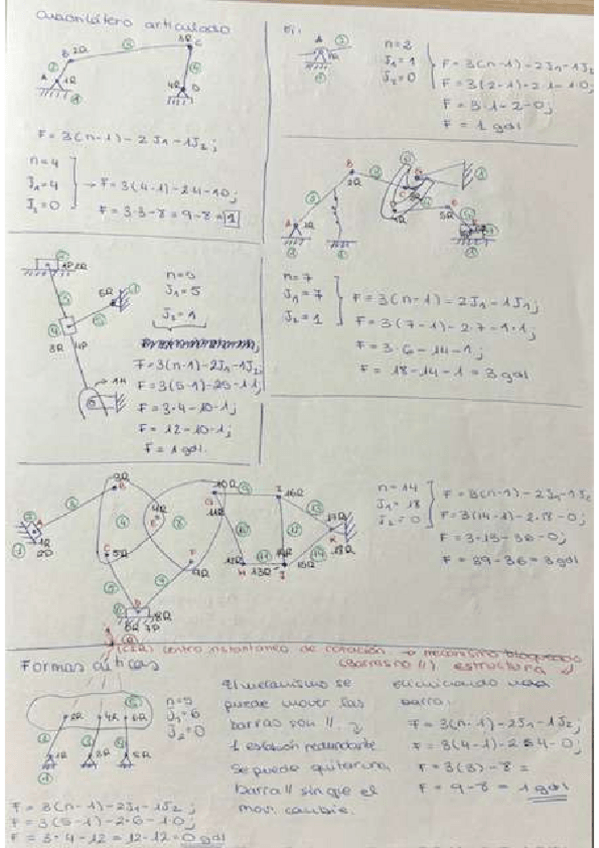 Cuadrilátero articulado
B 2R
3R C
A 1R
4R D
F = 3(n-1) - 2J₁ - 1J₂;
n=4
J₁=4
J₂=0
→ F = 3(4-1) - 2·4 - 1·0;
F = 3·3 - 8 = 9 - 8 = 1
Ej:
A
1R
n=2
J₁=1
J₂=0
F = 3(n-1) - 2J₁ - 1J₂
F = 3(2-1) - 2·1 - 1·0;
F = 3·1 - 2 - 0;
F = 1 gdl
B
2R
A 1R
4R
5R
n=7
J₁=7
J₂=1
F = 3(n-1) - 2J₁ - 1J₂;
F = 3(7-1) - 2·7 - 1·1;
F = 3·6 - 14 - 1;
F = 18 - 14 - 1 = 3 gdl
1P 2R
5R
3R 4P
1H
n=5
J₁=5
J₂=1
F = 3(n-1) - 2J₁ - 1J₂;
F = 3(5-1) - 2·5 - 1·1;
F = 3·4 - 10 - 1;
F = 12 - 10 - 1;
F = 1 gdl.
3R
B
10R
G
11R
I
16R
4R
E
A
1R
2P
C
5R
F
9R
12R
H
13R
14R
J
15R
17R
K
18R
D
6R 7P
8R
n=14
J₁=18
J₂=0
F = 3(n-1) - 2J₁ - 1J₂
F = 3(14-1) - 2·18 - 0;
F = 3·13 - 36 - 0;
F = 39 - 36 = 3 gdl
(CIR) centro instantáneo de rotación → mecanismo bloqueado
(barras no //) estructura
Formas críticas
2R 4R 6R
1R 3R 5R
n=5
J₁=6
J₂=0
F = 3(n-1) - 2J₁ - 1J₂;
F = 3(5-1) - 2·6 - 1·0;
F = 3·4 - 12 = 12 - 12 = 0 gdl
El mecanismo se
puede mover las
barras son //.
1 eslabón redundante
se puede quitar una
barra // sin que el
mov. cambie.
eliminando una
barra:
F = 3(n-1) - 2J₁ - 1J₂;
F = 3(4-1) - 2·4 - 0;
F = 3(3) - 8 =
F = 9 - 8 = 1 gdl